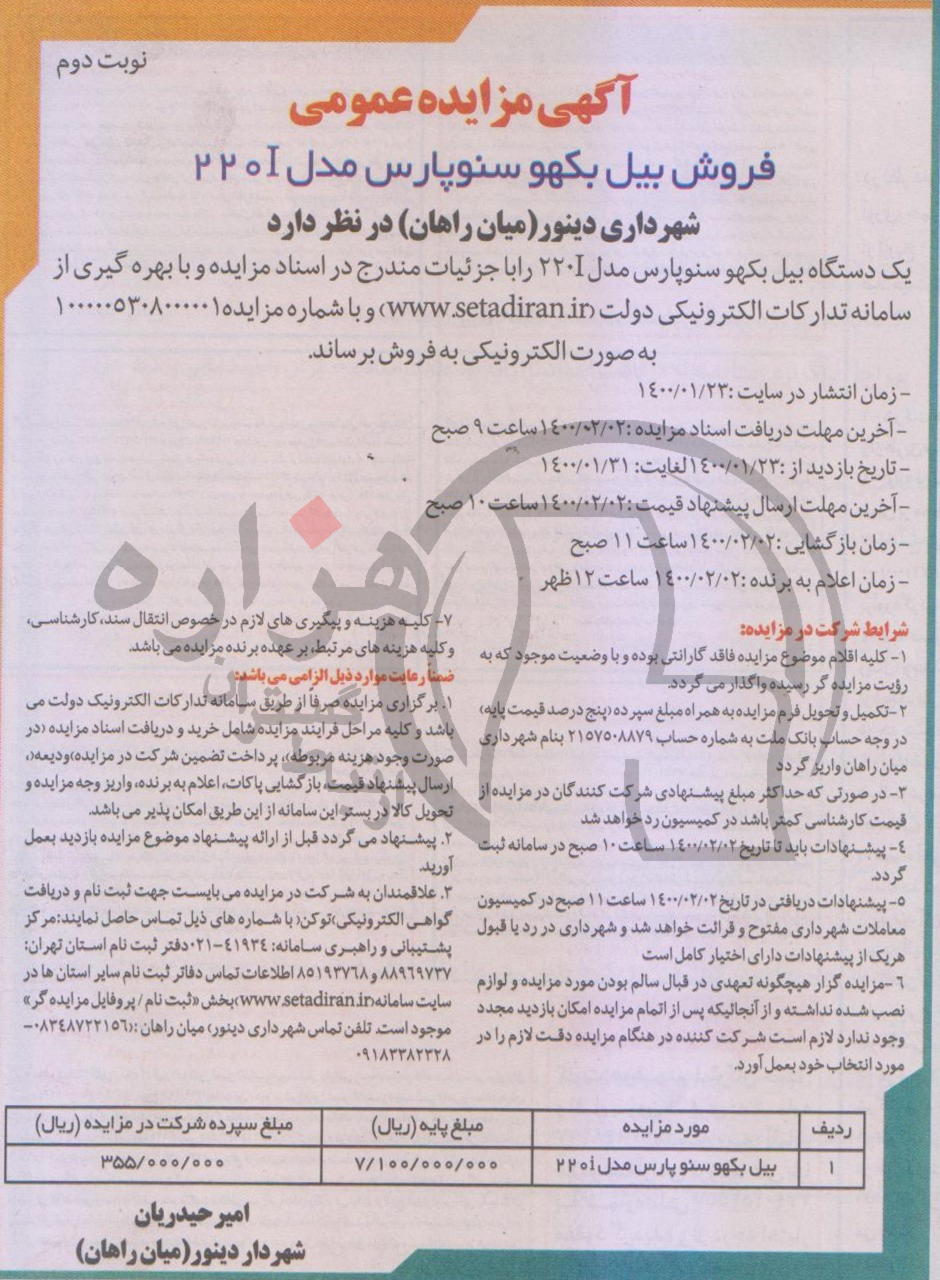 نوبت دوم
آگهی مزایده عمومی
فروش بیل بکهو سنوپارس مدل ۲۲۰I
شهرداری دینور(میان راهان) در نظر دارد
یک دستگاه بیل بکهو سنوپارس مدل ۲۲۰I رابا جزئیات مندرج در اسناد مزایده و با بهره گیری از
سامانه تدارکات الکترونیکی دولت (www.setadiran.ir) و با شماره مزایده۱۰۰۰۰۰۵۳۰۸۰۰۰۰۰۱
به صورت الکترونیکی به فروش برساند.
- زمان انتشار در سایت :۱۴۰۰/۰۱/۲۳
- آخرین مهلت دریافت اسناد مزایده :۱۴۰۰/۰۲/۰۲ساعت ۹ صبح
- تاریخ بازدید از :۱۴۰۰/۰۱/۲۳لغایت: ۱۴۰۰/۰۱/۳۱
-آخرین مهلت ارسال پیشنهاد قیمت :۱۴۰۰/۰۲/۰۲ساعت ۱۰ صبح
- زمان بازگشایی :۱۴۰۰/۰۲/۰۲ساعت ۱۱ صبح
- زمان اعلام به برنده :۱۴۰۰/۰۲/۰۲ ساعت ۱۲ظهر
شرایط شرکت در مزایده:
۱- کلیه اقلام موضوع مزایده فاقد گارانتی بوده و با وضعیت موجود که به
رؤیت مزایده گر رسیده واگذار می گردد.
۲-تکمیل و تحویل فرم مزایده به همراه مبلغ سپرده (پنج درصد قیمت پایه)
در وجه حساب بانک ملت به شماره حساب ۲۱۵۷۵۰۸۸۷۹ بنام شهرداری
میان راهان واریز گردد
۳- در صورتی که حداکثر مبلغ پیشنهادی شرکت کنندگان در مزایده از
قیمت کارشناسی کمتر باشد در کمیسیون رد خواهد شد
۴- پیشنهادات باید تا تاریخ ۱۴۰۰/۰۲/۰۲ ساعت ۱۰ صبح در سامانه ثبت
گردد.
۵- پیشنهادات دریافتی در تاریخ ۱۴۰۰/۰۲/۰۲ ساعت ۱۱ صبح در کمیسیون
معاملات شهرداری مفتوح و قرائت خواهد شد و شهرداری در رد یا قبول
هریک از پیشنهادات دارای اختیار کامل است
۶ -مزایده گزار هیچگونه تعهدی در قبال سالم بودن مورد مزایده و لوازم
نصب شده نداشته و از آنجائیکه پس از اتمام مزایده امکان بازدید مجدد
وجود ندارد لازم است شرکت کننده در هنگام مزایده دقت لازم را در
مورد انتخاب خود بعمل آورد.
۷- کلیه هزینه و پیگیری های لازم در خصوص انتقال سند، کارشناسی،
و کلیه هزینه های مرتبط، بر عهده برنده مزایده می باشد.
ضمناً رعایت موارد ذیل الزامی می باشد:
۱. برگزاری مزایده صرفاً از طریق سامانه تدارکات الکترونیک دولت می
باشد و کلیه مراحل فرآیند مزایده شامل خرید و دریافت اسناد مزایده (در
صورت وجود هزینه مربوطه)، پرداخت تضمین شرکت در مزایده)ودیعه(،
ارسال پیشنهاد قیمت، بازگشایی پاکات، اعلام به برنده، واریز وجه مزایده و
تحویل کالا در بستر این سامانه از این طریق امکان پذیر می باشد.
۲. پیشنهاد می گردد قبل از ارائه پیشنهاد موضوع مزایده بازدید بعمل
آورید.
۳. علاقمندان به شرکت در مزایده می بایست جهت ثبت نام و دریافت
گواهی الکترونیکی)توکن( با شماره های ذیل تماس حاصل نمایند:مرکز
پشتیبانی و راهبری سامانه: ۴۱۹۳۴-۰۲۱دفتر ثبت نام استان تهران:
۸۸۹۶۹۷۳۷ و ۸۵۱۹۳۷۶۸ اطلاعات تماس دفاتر ثبت نام سایر استان ها در
سایت سامانه(www.setadiran.ir)بخش «ثبت نام / پروفایل مزایده گر»
موجود است. تلفن تماس شهرداری دینور) میان راهان :(۰۸۳۴۸۷۲۲۱۵۶-
۰۹۱۸۳۳۸۲۳۲۸
ردیف مورد مزایده مبلغ پایه (ریال) مبلغ سپرده شرکت در مزایده (ریال)
۱ بیل بکهو سنو پارس مدل ۲۲۰i ۷/۱۰۰/۰۰۰/۰۰۰ ۳۵۵/۰۰۰/۰۰۰
امیر حیدریان
شهردار دینور(میان راهان)
هزاره